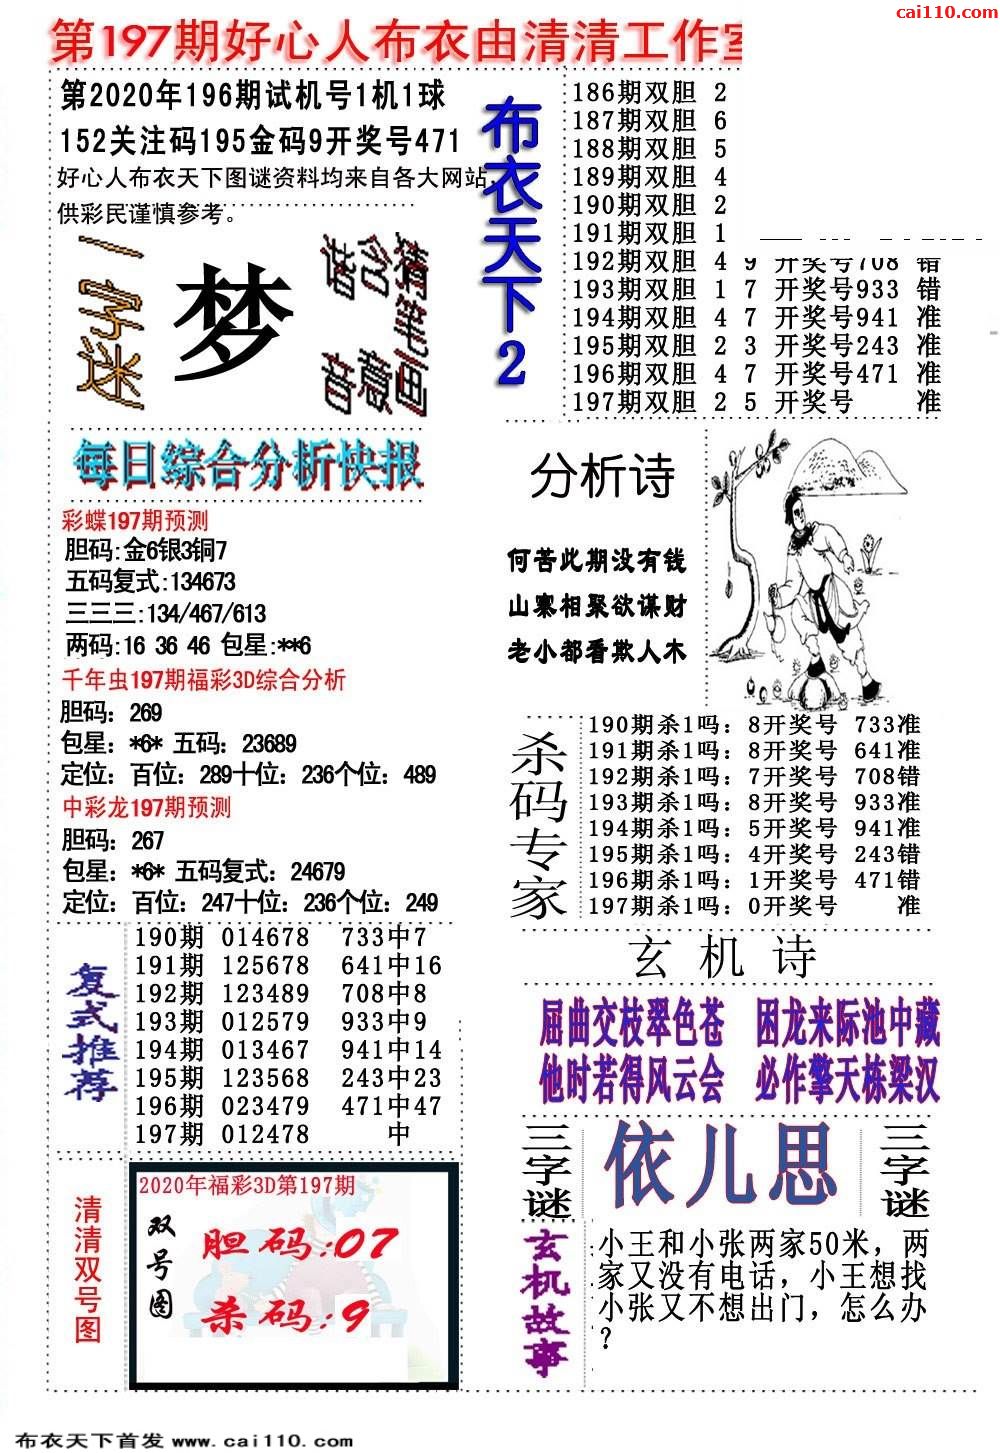 cai110.com
第197期好心人布衣由清清工作室
第2020年196期试机号1机1球
152关注码195金码9开奖号471
好心人布衣天下图谜资料均来自各大网站,
供彩民谨慎参考。
一字迷
梦
猜笔画
含意
谐音
布衣天下2
186期双胆 2
187期双胆 6
188期双胆 5
189期双胆 4
190期双胆 2
191期双胆 1
192期双胆 4 9 开奖号708 错
193期双胆 1 7 开奖号933 错
194期双胆 4 7 开奖号941 准
195期双胆 2 3 开奖号243 准
196期双胆 4 7 开奖号471 准
197期双胆 2 5 开奖号 准
每日综合分析快报
彩蝶197期预测
胆码:金6银3铜7
五码复式:134673
三三三:134/467/613
两码:16 36 46 包星:**6
千年虫197期福彩3D综合分析
胆码：269
包星：*6* 五码：23689
定位：百位：289十位：236个位：489
中彩龙197期预测
胆码：267
包星：*6* 五码复式：24679
定位：百位：247十位：236个位：249
分析诗
何苦此期没有钱
山寨相聚欲谋财
老小都看欺人木
杀码专家
190期杀1吗：8开奖号 733准
191期杀1吗：8开奖号 641准
192期杀1吗：7开奖号 708错
193期杀1吗：8开奖号 933准
194期杀1吗：5开奖号 941准
195期杀1吗：4开奖号 243错
196期杀1吗：1开奖号 471错
197期杀1吗：0开奖号 准
复式推荐
190期 014678 733中7
191期 125678 641中16
192期 123489 708中8
193期 012579 933中9
194期 013467 941中14
195期 123568 243中23
196期 023479 471中47
197期 012478 中
玄机诗
屈曲交枝翠色苍 困龙来际池中藏
他时若得风云会 必作擎天栋梁汉
三字谜
依儿思
三字谜
清清双号图
2020年福彩3D第197期
双号图
胆码:07
杀码:9
玄机故事
小王和小张两家50米，两
家又没有电话，小王想找
小张又不想出门，怎么办
？
布衣天下首发 www.cai110.com